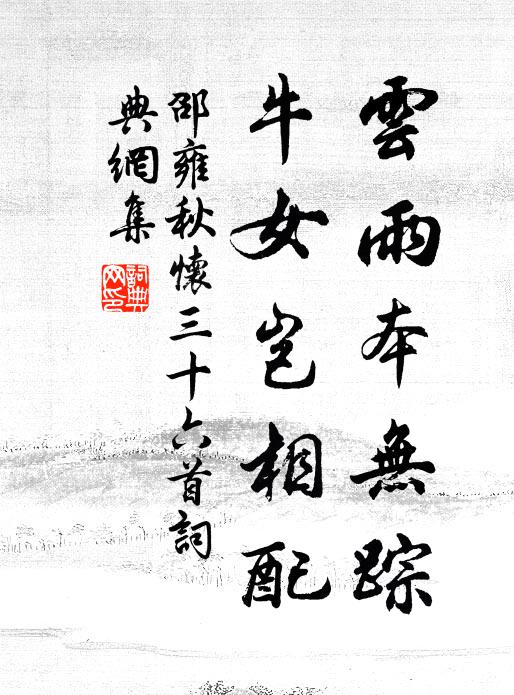 雲雨本無踪
牛女豈相配
邵雍秋懷三十六首詞
典網集
詞典網印